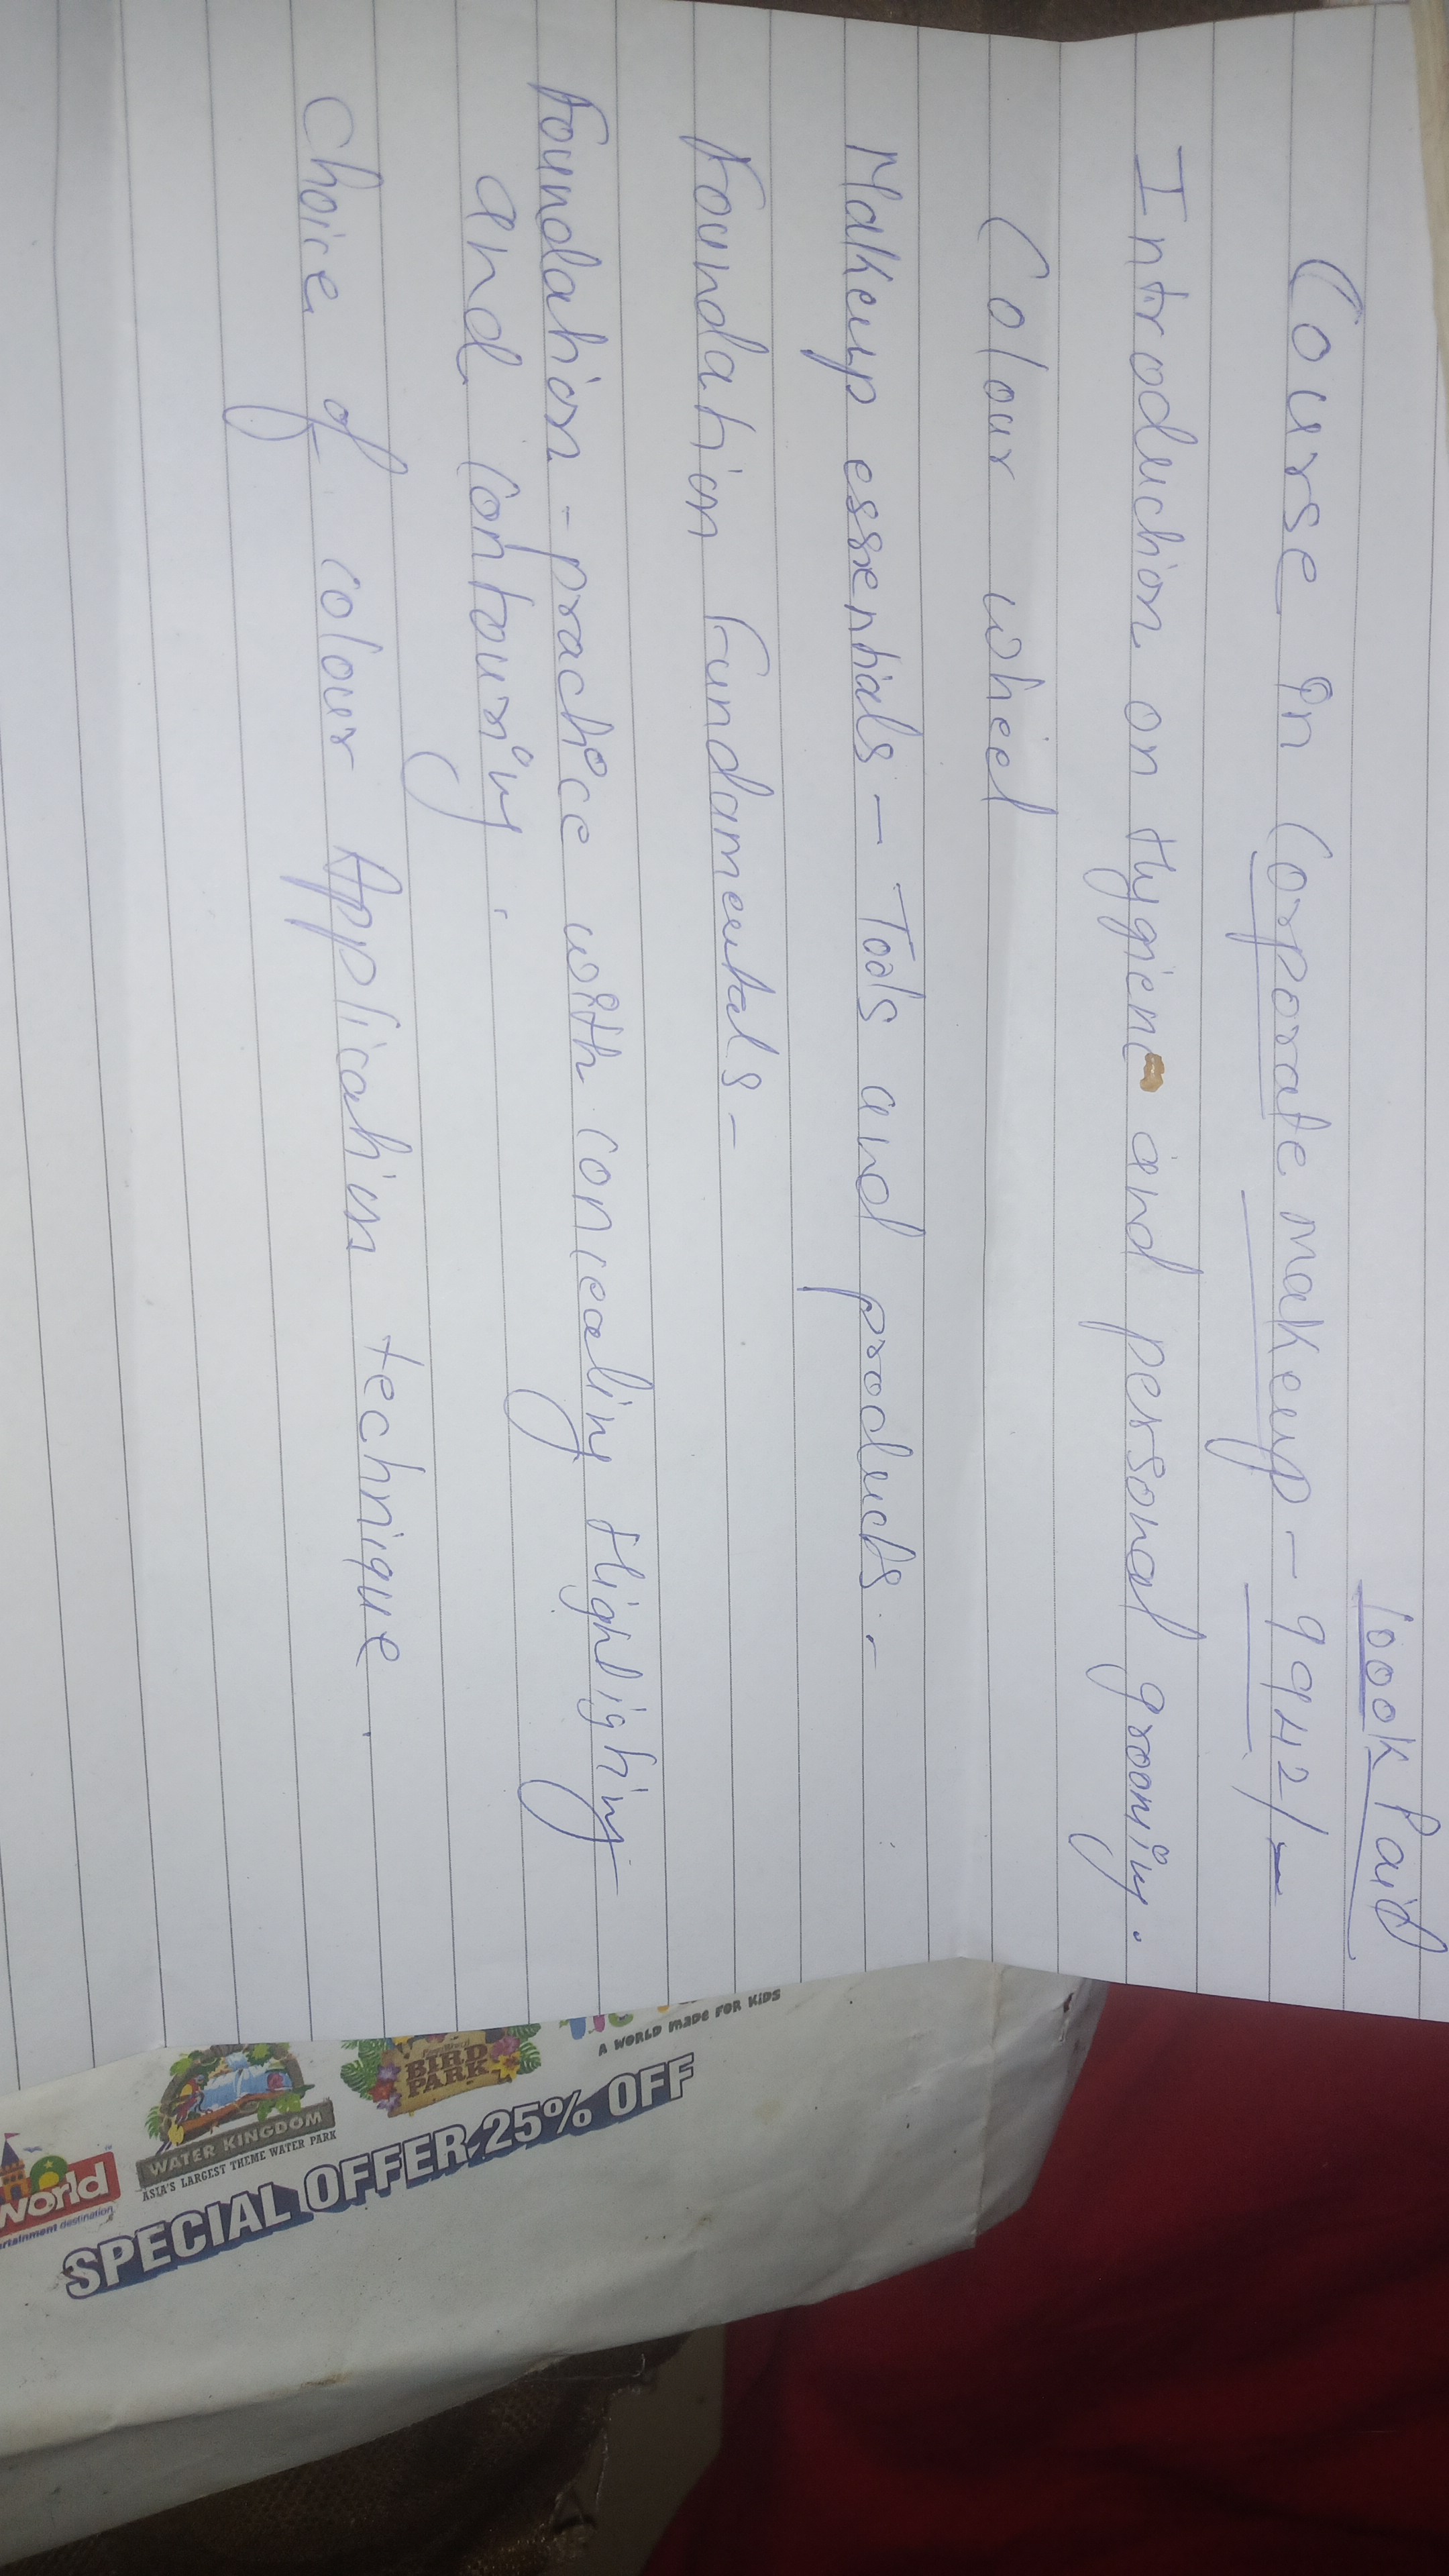 look Paid
Course in Corporate makeup - 9942/-
Introduction on Hygiene and personal grooming.
Colour wheel
Makeup essentials - Tools and products.
Foundation Fundamentals -
Foundation - practice with concealing Highlighting
and Contouring.
Choice of colour Application technique.
A WORLD MADE FOR KIDS
BIRD
PARK
WATER KINGDOM
ASIA'S LARGEST THEME WATER PARK
World
SPECIAL OFFER 25% OFF